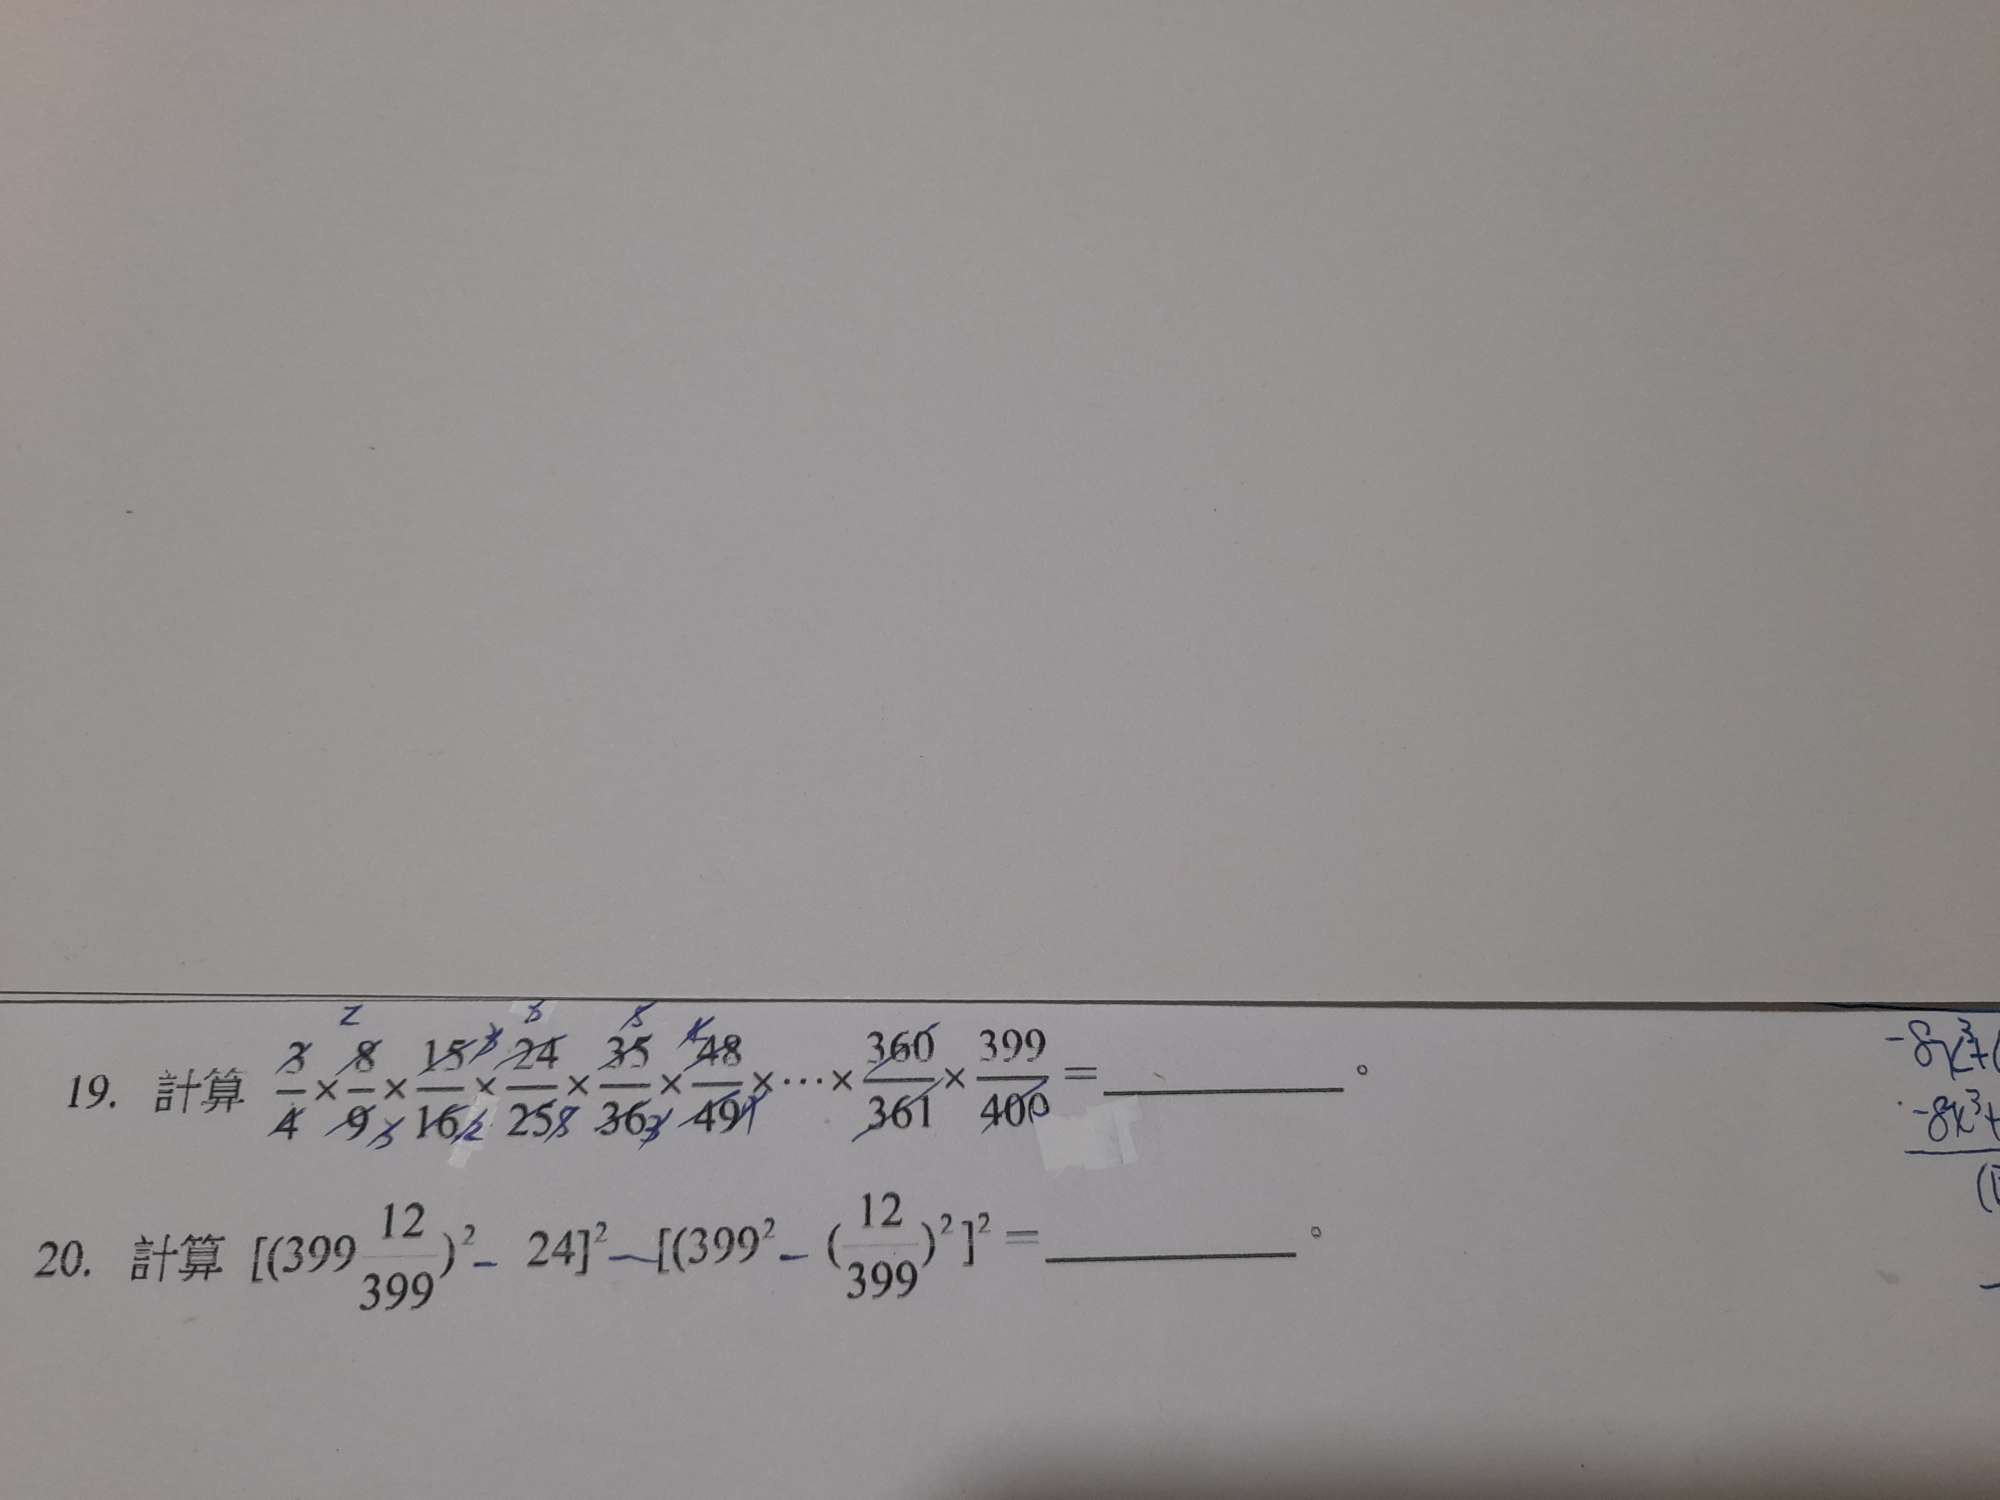 19. 計算 3/4 × 8/9 × 15/16 × 24/25 × 35/36 × 48/49 × ⋯ × 360/361 × 399/400 = ________ 。
20. 計算 [(399 12/399)² - 24]² - [(399² - (12/399)²]² = ________ 。
-8x³+(
-8x³+